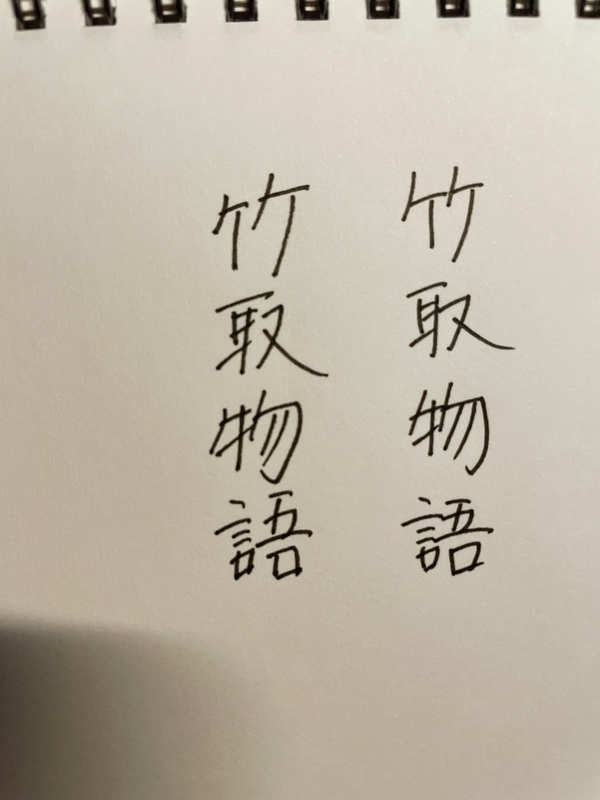 竹取物語
竹取物語